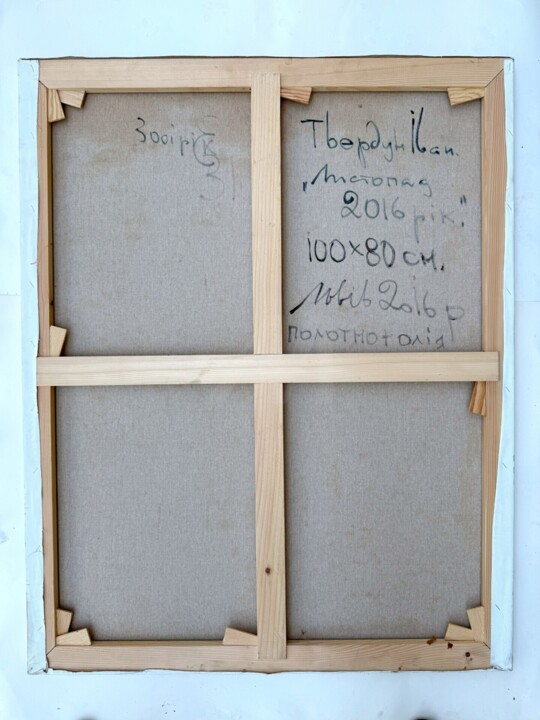 Твердун Іван.
„Листопад
2016 рік."
100×80 см.
Львів 2016 р
полотно+олія
31